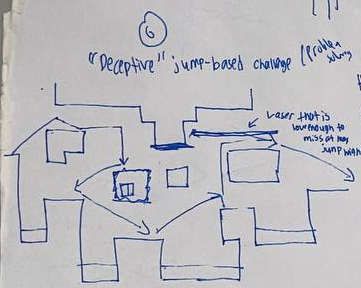 6
"Deceptive" jump-based challenge (problem
solving
Laser that is
low enough to
miss at max
jump height